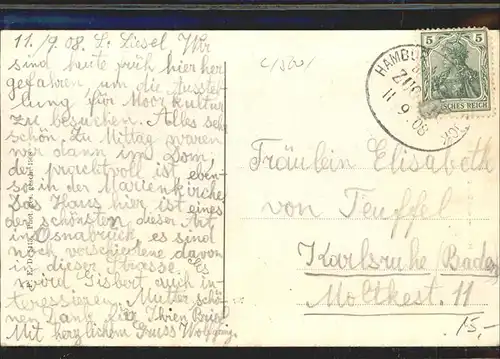 11./9.08. L. Liesel. Wir
sind heute früh hierher
gefahren um die Ausstel-
lung für Moorkultur
zu besuchen. Alles sehr
schön. Zu Mittag waren
wir dann im Dom,
der prachtvoll ist eben-
so in der Marienkirche
Das Haus hier ist eines
der schönsten dieser Art
in Osnabrück, es sind
noch verschiedene davon
in dieser Strasse. Es
wird Gisbert auch in-
teressieren. Mutter schö-
nen Dank für ihren Brief
Mit herzlichem Gruss Wolfgang.
5 5
DEUTSCHES REICH
HAMBU
ZUG
11 9 08
Fräulein Elisabeth
von Teuffel
Karlsruhe (Baden)
Moltkest. 11
15,-